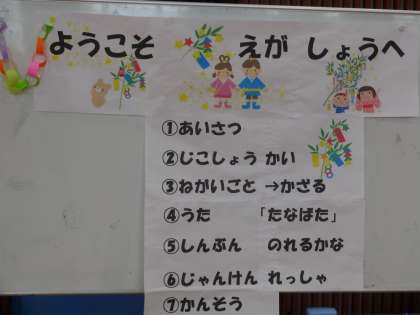 ようこそ えが しょうへ
①あいさつ
②じこしょう かい
③ねがいごと →かざる
④うた 「たなばた」
⑤しんぶん のれるかな
⑥じゃんけん れっしゃ
⑦かんそう